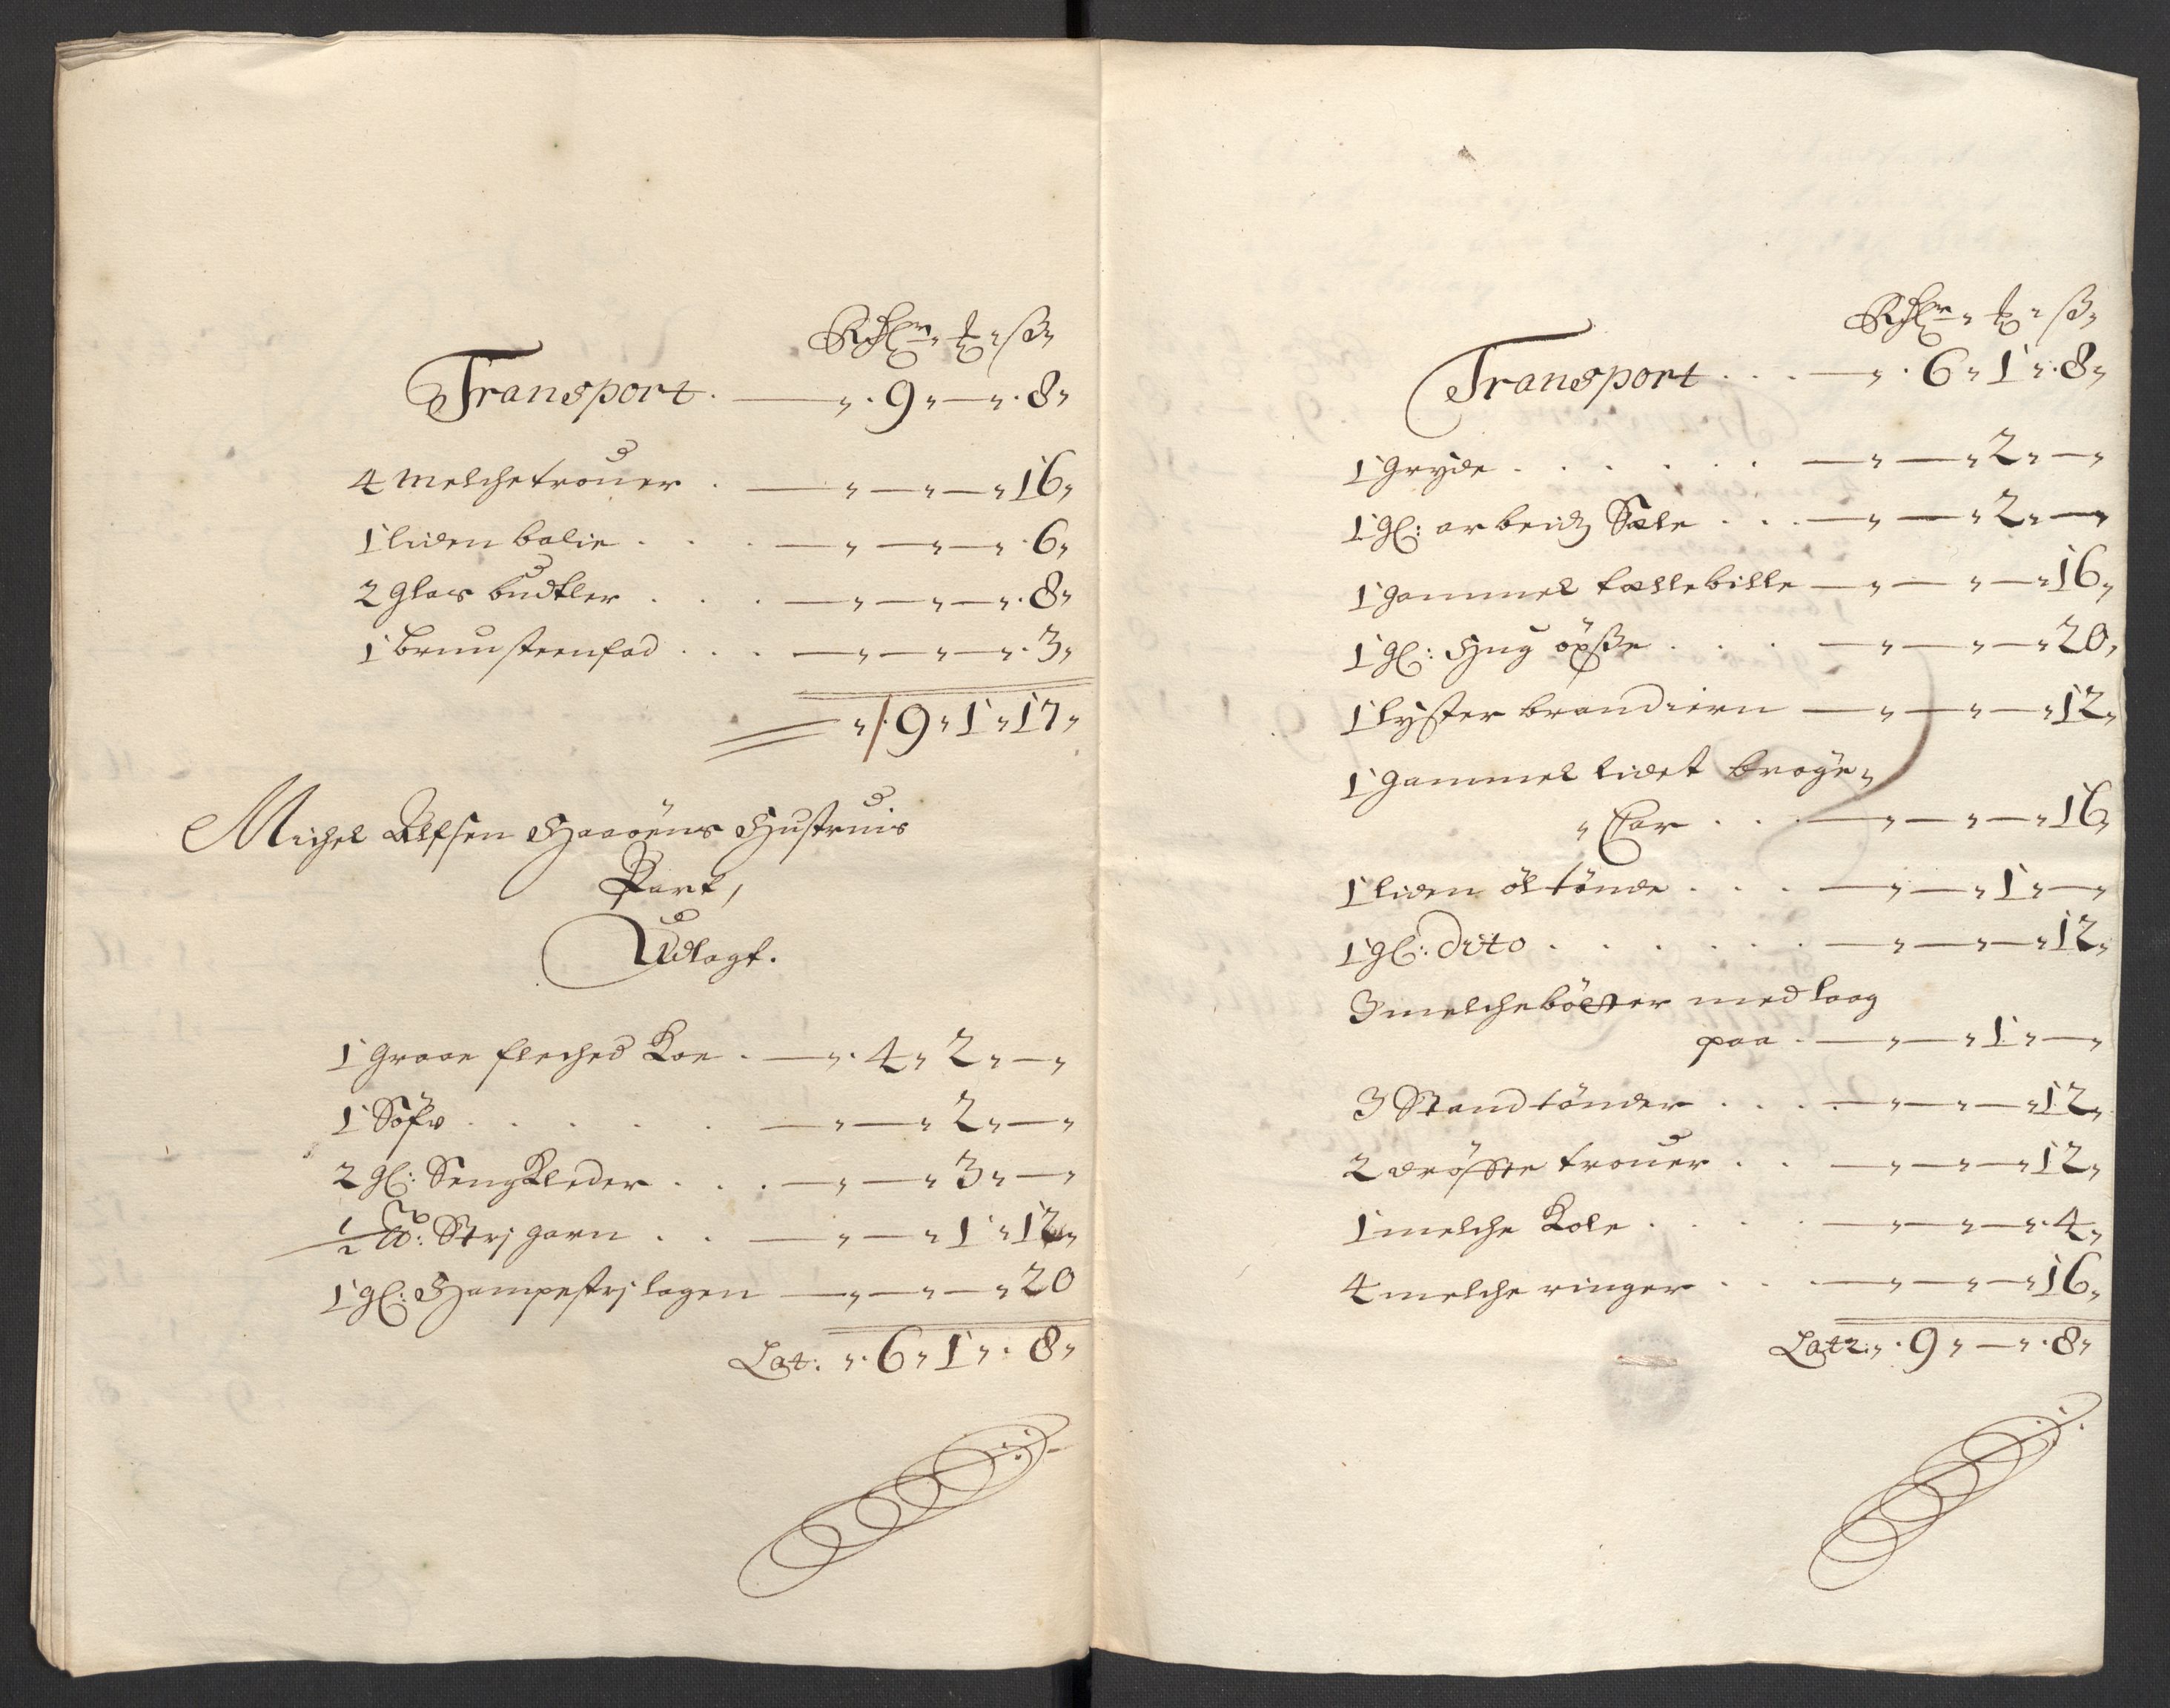 Rdlr " ℔ " ß "
Transport. — " . 9 " — " . 8 "
4 Melchetrouer . — " — " — " 16 "
1 liden balie . . . — " — " — " . 6 "
2 glas budtler . . . — " — " — " . 8 "
1 bruusteenfad . . . — " — " — " . 3 "
" 9 " 1 " 17 "
Michel Olfsen Haaöens Hustruis
Part,
Udlagt.
1 graae flecked Koe . — " . 4 " 2 " — "
1 Söfv . . . . . — " — " 2 " — "
2 gl: Sengklæder . . . — " — " 3 " — "
1/2 ℔: Strj garn . . — " — " 1 " 12 "
1 gl: Hampestrj lagen — " — " — " 20
Lat: " . 6 " 1 " . 8 "
Rdlr " ℔ " ß "
Transport . . . — " . 6 " 1 " . 8 "
1 gryde . . . . . . — " — " 2 " — "
1 gl: arbeidz Sæle . . . — " — " 2 " — "
1 gammel tællebille — " — " — " 16 "
1 gl: Hug öxße . . . — " — " — " 20 "
1 lyster brandiern — " — " — " 12 "
1 gammel lidet brøge "
" Kar . . . — " — " — " 16 "
1 liden öltönde . . . — " — " 1 " — "
1 gl: dito . . . . . . — " — " — " 12 "
3 melchebötter med laag
paa . — " — " 1 " — "
3 Standtönder . . . . — " — " — " 12 "
2 dröfste trouer . . — " — " — " 12 "
1 melche Kole . . . . — " — " — " . 4 "
4 melche ringer . . . — " — " — " 16 "
Latr: " . 9 " — " . 8 "